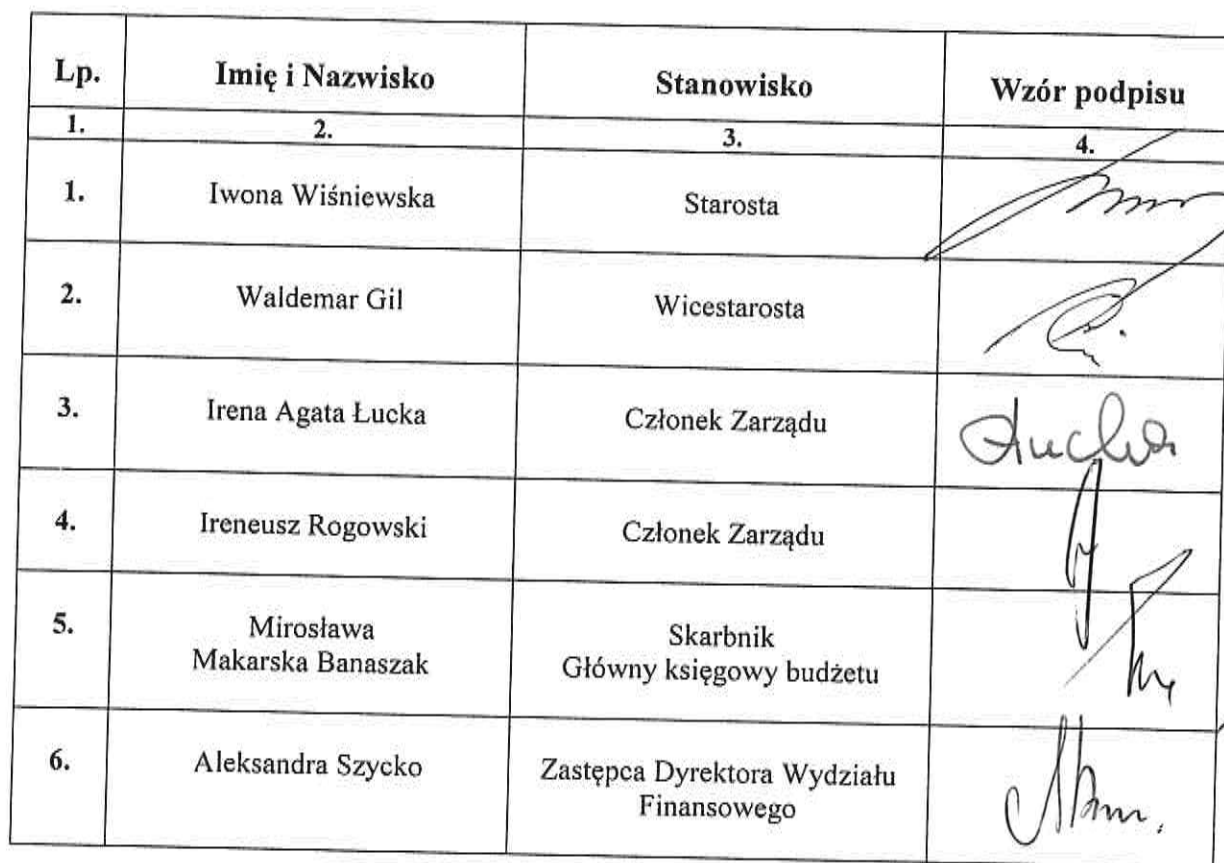 Lp. Imię i Nazwisko Stanowisko Wzór podpisu
1. 2. 3. 4.
1. Iwona Wiśniewska Starosta
2. Waldemar Gil Wicestarosta
3. Irena Agata Łucka Członek Zarządu Łucka
4. Ireneusz Rogowski Członek Zarządu
5. Mirosława Skarbnik
Makarska Banaszak Główny księgowy budżetu
6. Aleksandra Szycko Zastępca Dyrektora Wydziału
Finansowego